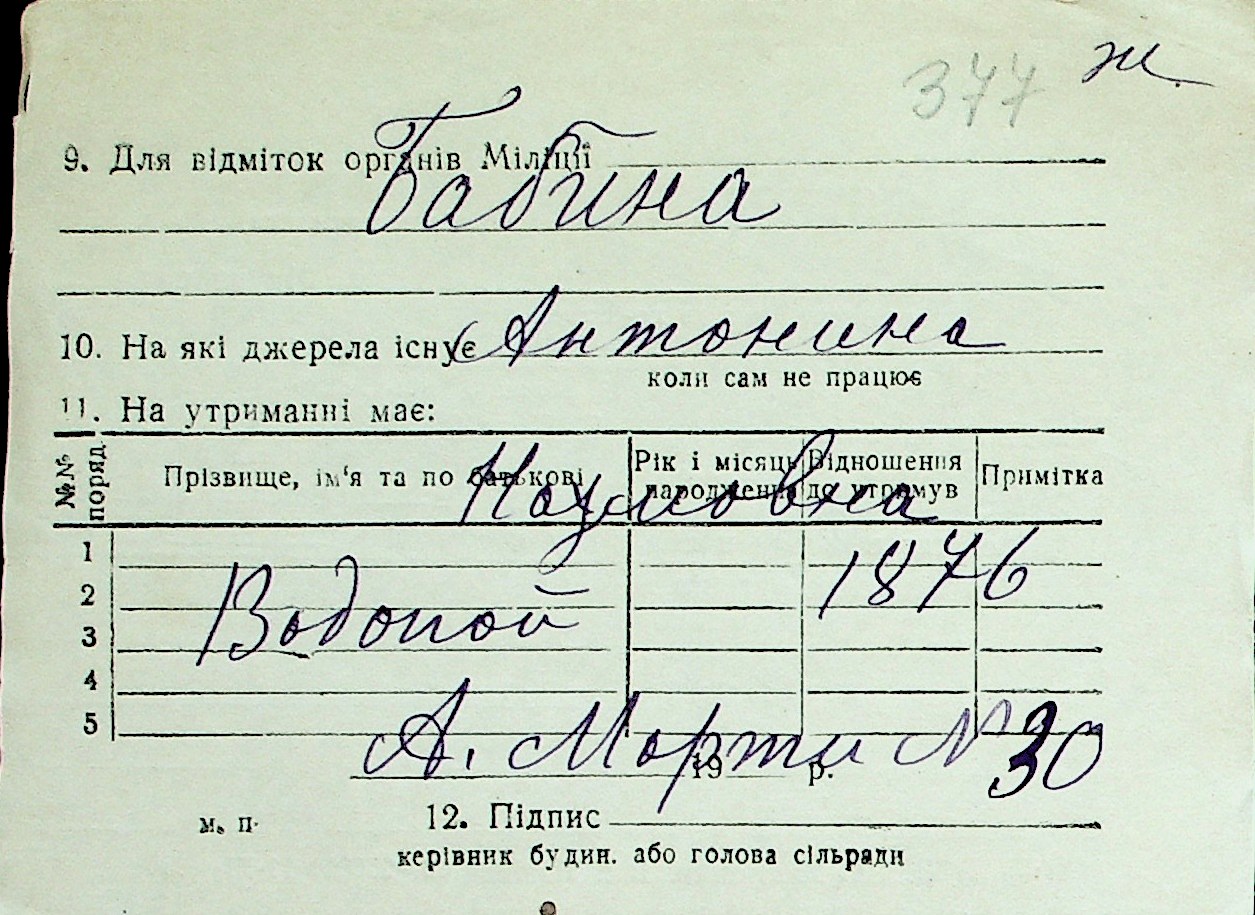 377 ж.
9. Для відміток органів Міліції
Бабина
10. На які джерела існує
Антонина
коли сам не працює
11. На утриманні має:
№№ поряд. Прізвище, ім‘я та по батькові Рік і місяць народження Відношення до утримув Примітка
Наумовна
1
1876
2
Водопой
3
4
5
А. Марти № 30
19 р.
м. п. 12. Підпис
керівник будин. або голова сільради